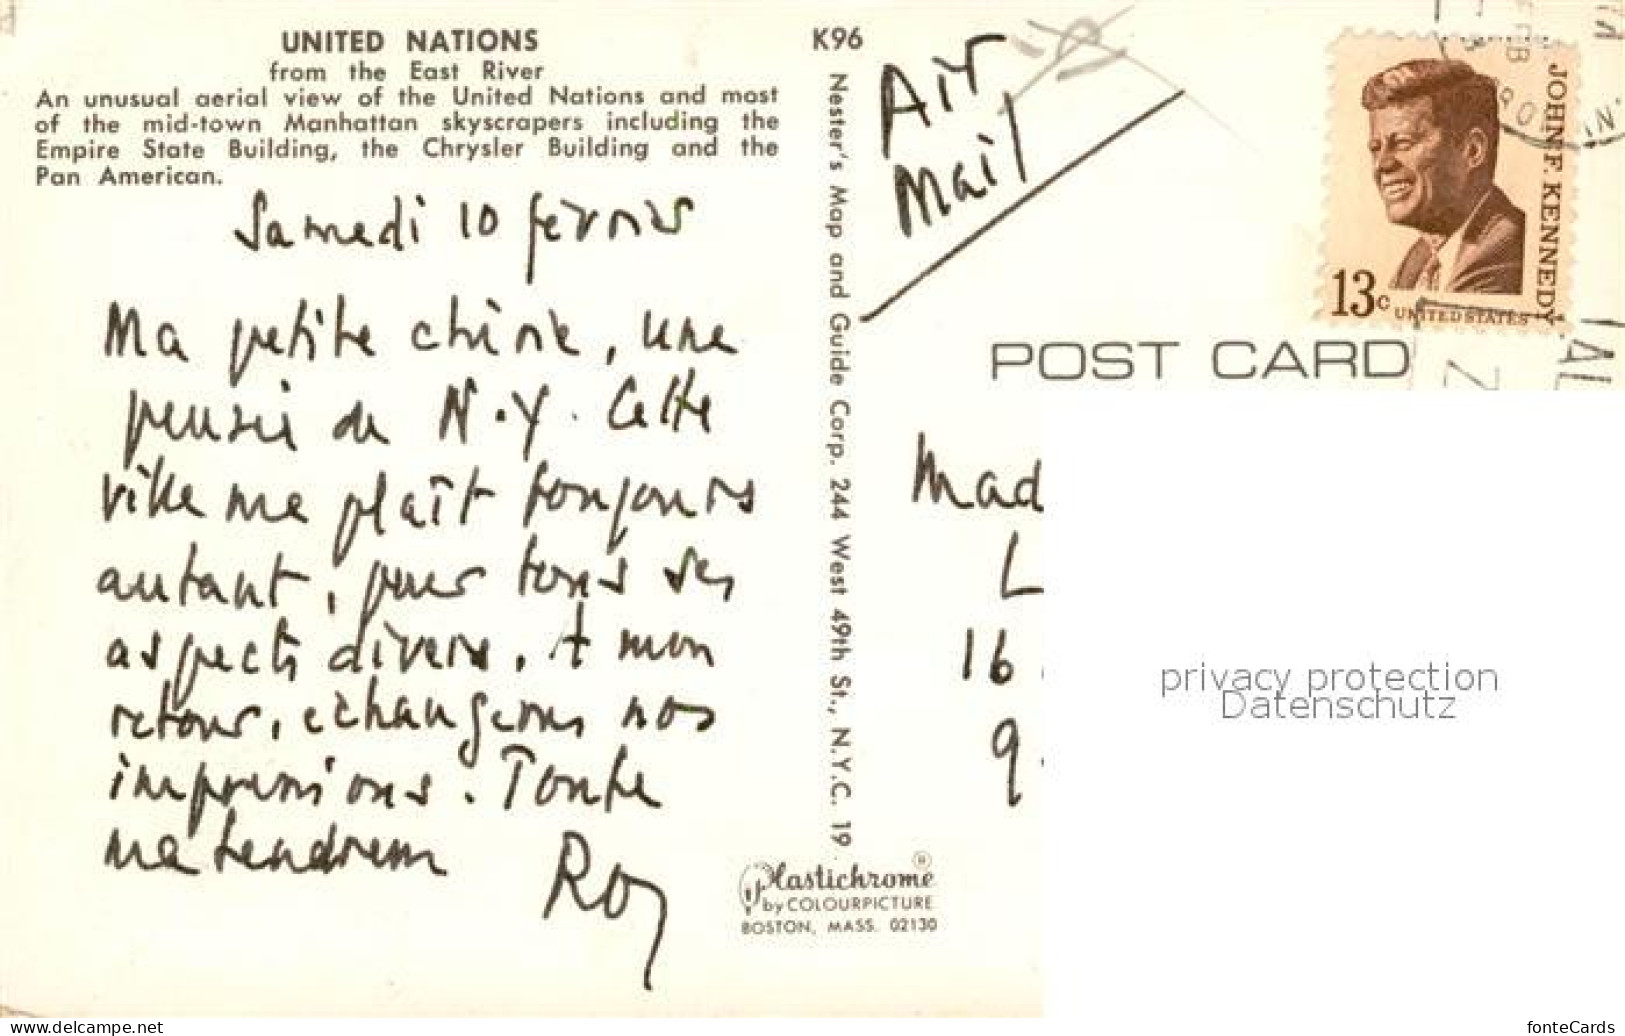 UNITED NATIONS
from the East River
An unusual aerial view of the United Nations and most
of the mid-town Manhattan skyscrapers including the
Empire State Building, the Chrysler Building and the
Pan American.
Samedi 10 février
Ma petite chérie, une
pensée de N.Y. Cette
ville me plaît toujours
autant, pour tous ses
aspects divers. A mon
retour, échangerons nos
impressions. Toute
ma tendresse
Roy
K96
Nester's Map and Guide Corp. 244 West 49th St., N.Y.C. 19
Plastichrome ®
by COLOURPICTURE
BOSTON, MASS. 02130
Air
Mail
JOHN F. KENNEDY
13c
UNITED STATES
FEB
POST CARD
Mad
L
16
9
privacy protection
Datenschutz
www.delcampe.net
fonteCards